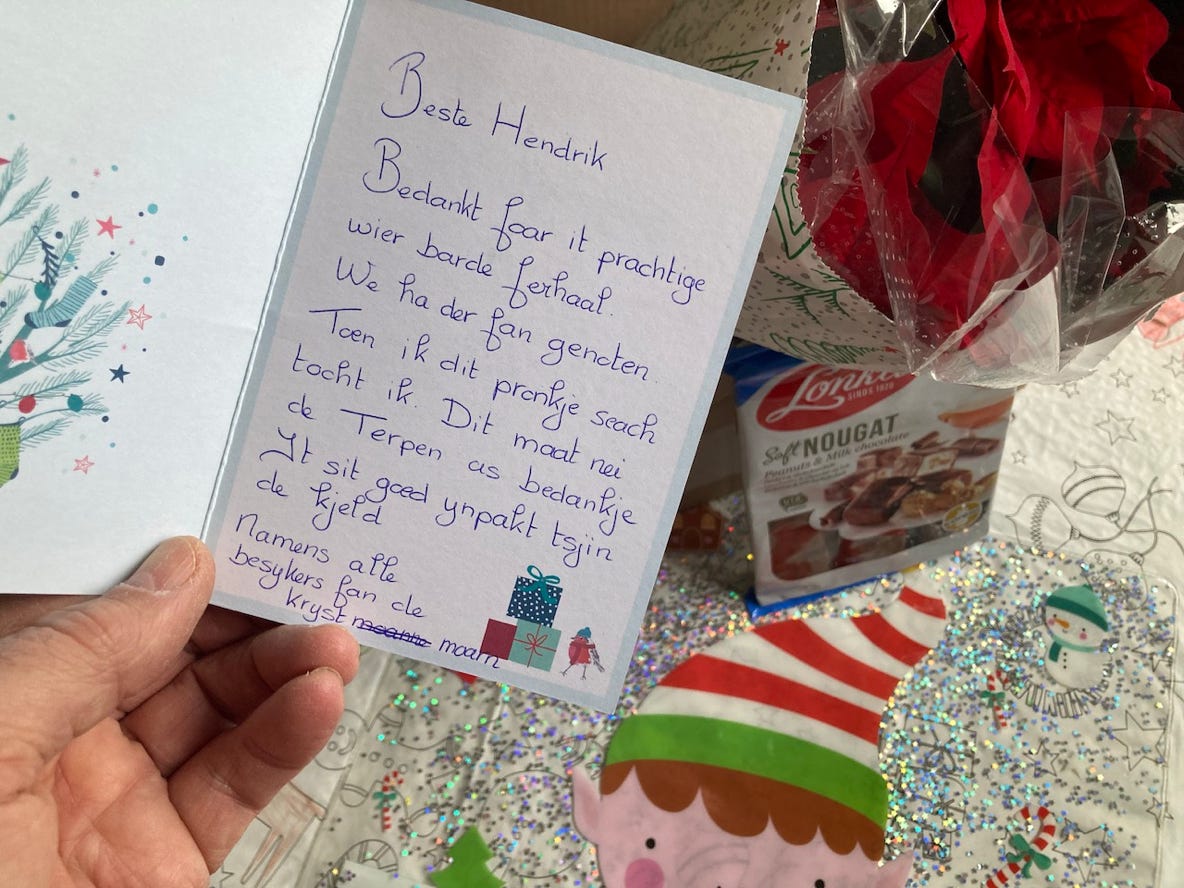 Beste Hendrik
Bedankt foar it prachtige
wier barde ferhaal.
We ha der fan genoten.
Toen ik dit pronkje seach
tocht ik. Dit moat nei
de Terpen as bedankje
It sit goed ynpakt tsjin
de kjeld
Namens alle
besykers fan de
kryst moarn
Lonka
SINDS 1920
Soft NOUGAT
Peanuts & Milk chocolate